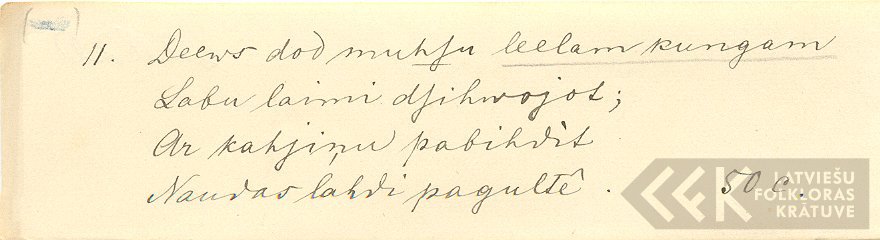 11. Deews dod muhsu leelam kungam
Labu laimi dsihwojot;
Ar kahjiņu pabihdit
Naudas lahdi pagultê. 50 c.
LATVIEŠU
FOLKLORAS
KRĀTUVE